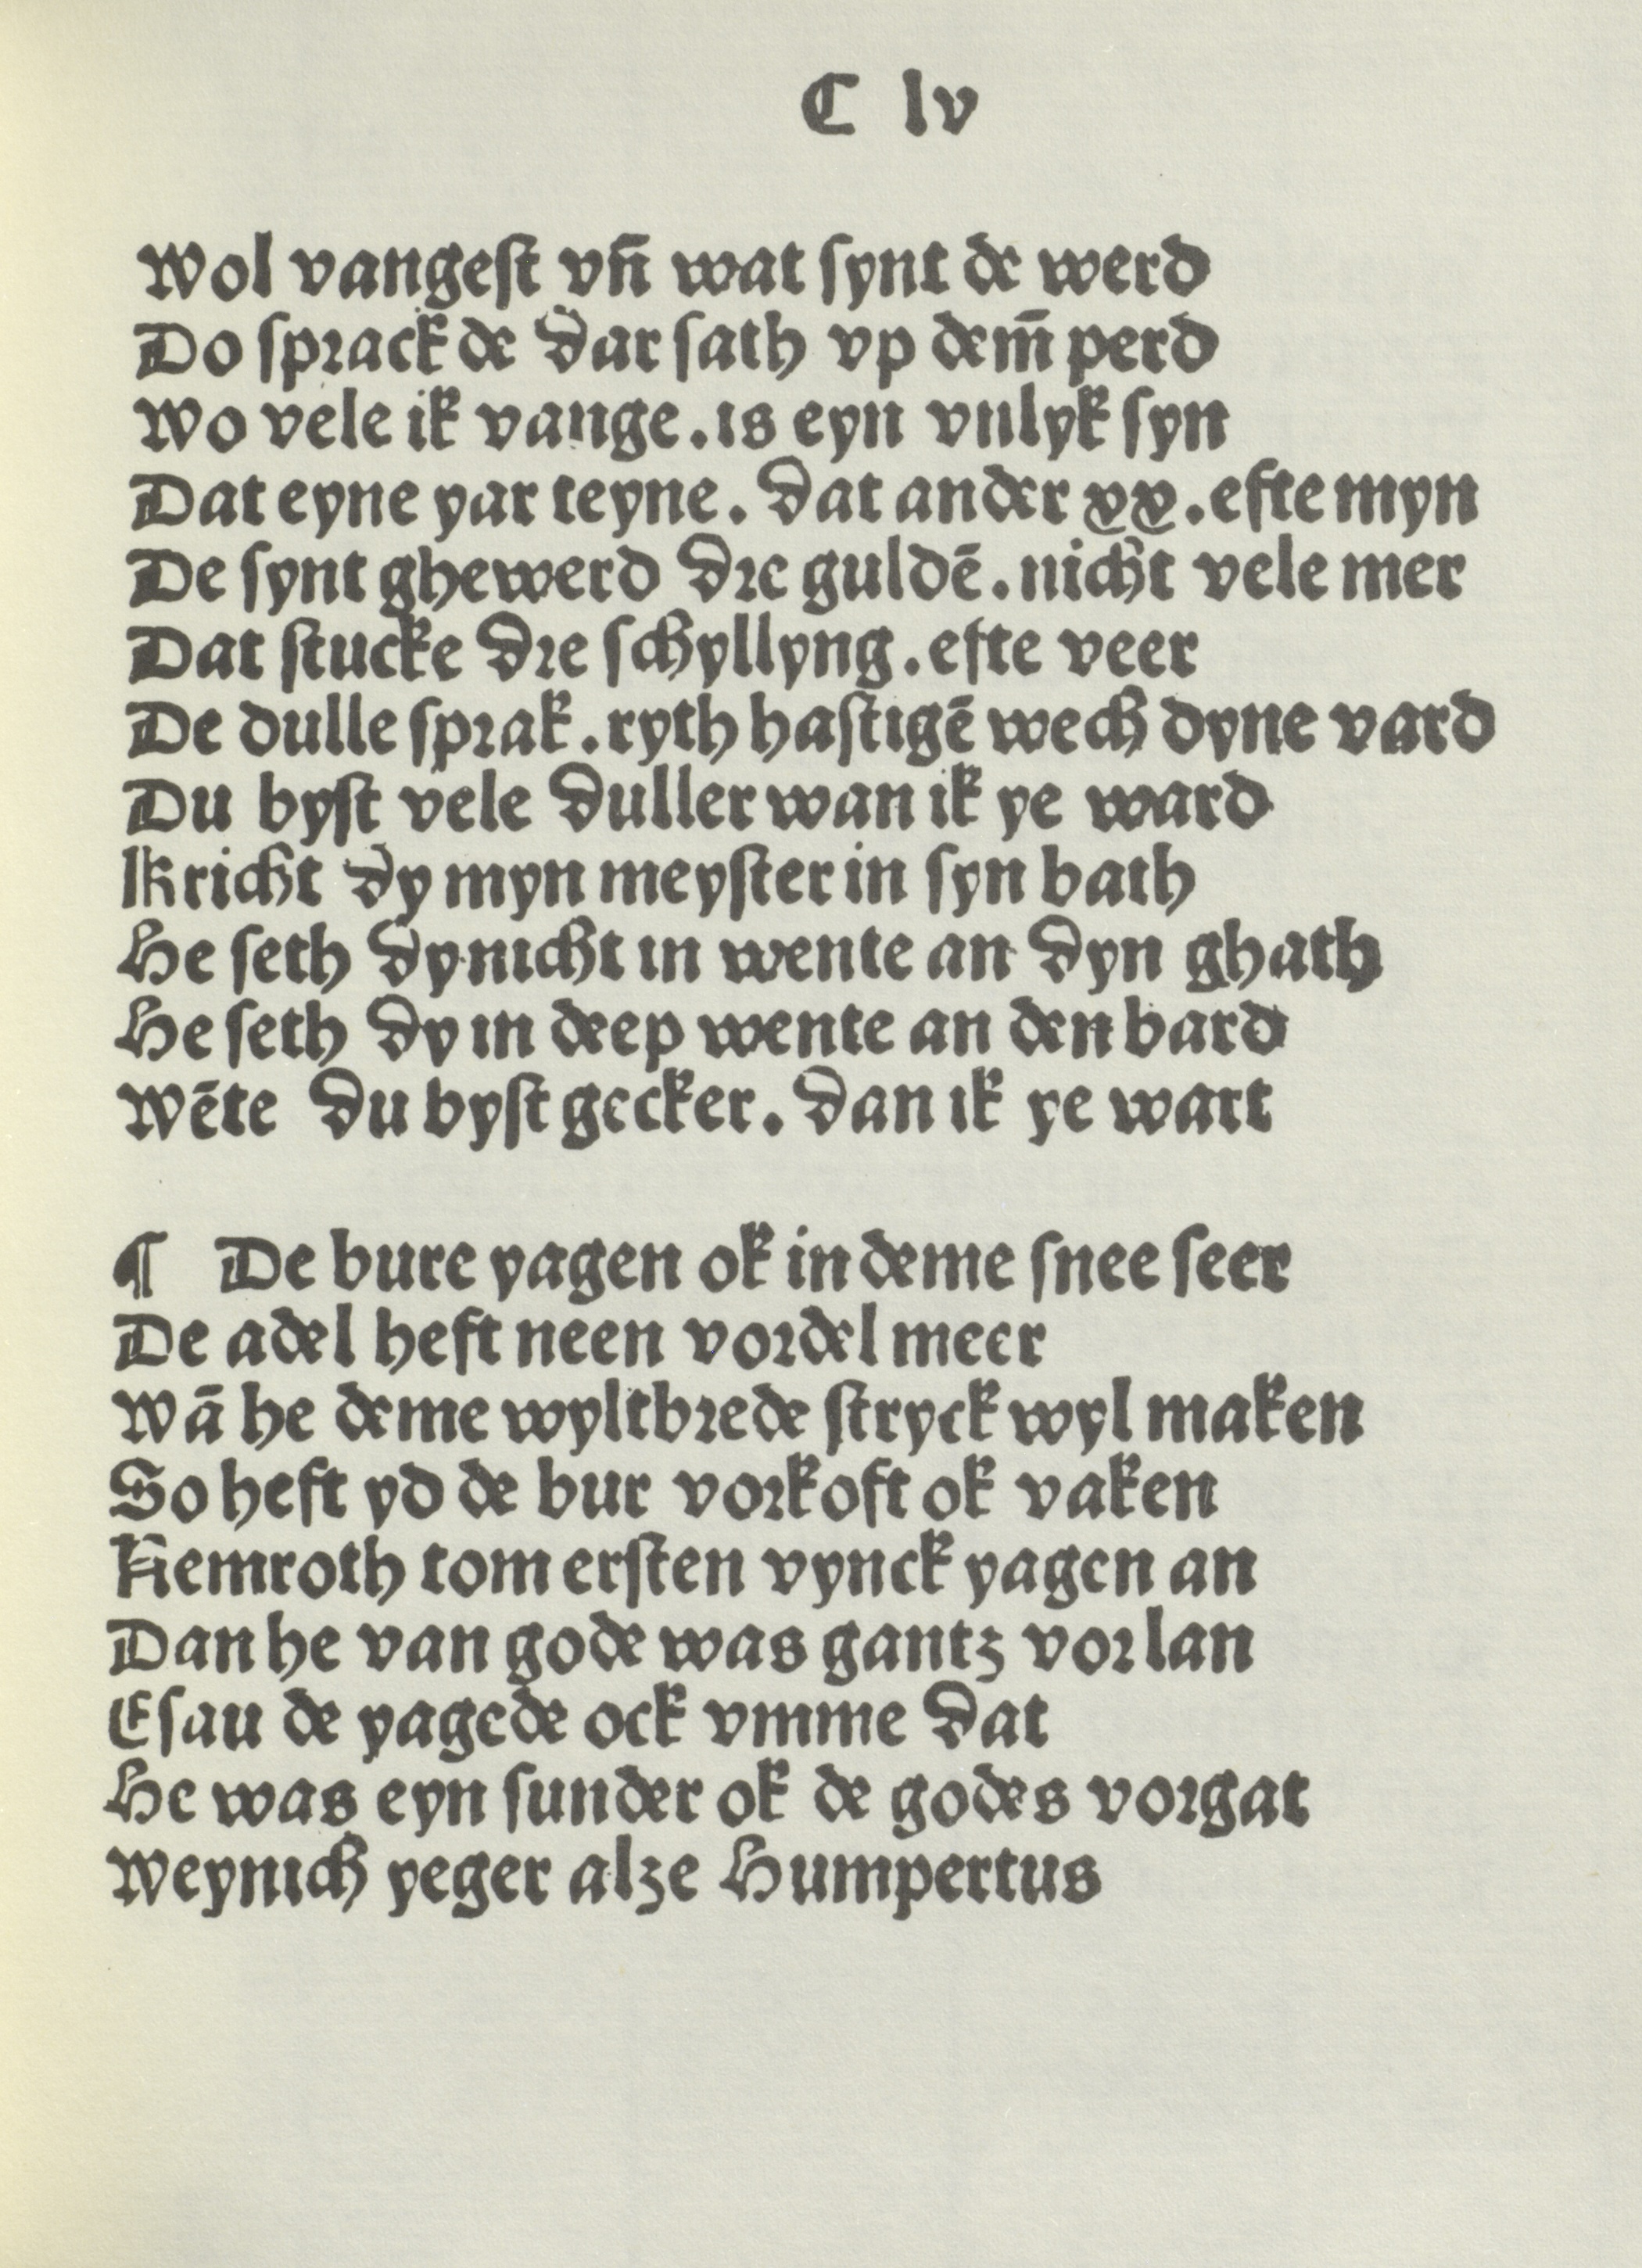 C lv
Wol vangest vn̄ wat synt de werd
Do sprack de dar sath vp dem̄ perd
Wo vele ik vange. is eyn vnlyk syn
Dat eyne yar teyne. dat ander xx. efte myn
De synt ghewerd dre guldē. nicht vele mer
Dat stucke dre schyllyng. efte veer
De dulle sprak. ryth hastigē wech dyne vard
Du byst vele duller wan ik ye ward
Kricht dy myn meyster in syn bath
He seth dy nicht in wente an dyn ghath
He seth dy in deep wente an den bard
Wēte du byst gecker. dan ik ye wart
¶ De bure yagen ok in deme snee seer
De adel heft neen vordel meer
Wā he deme wyltbrede stryck wyl maken
So heft yd de bur vorkoft ok vaken
Nemroth tom ersten vynck yagen an
Dan he van gode was gantz vorlan
Esau de yagede ock vmme dat
He was eyn sunder ok de godes vorgat
Weynich yeger alze Humpertus